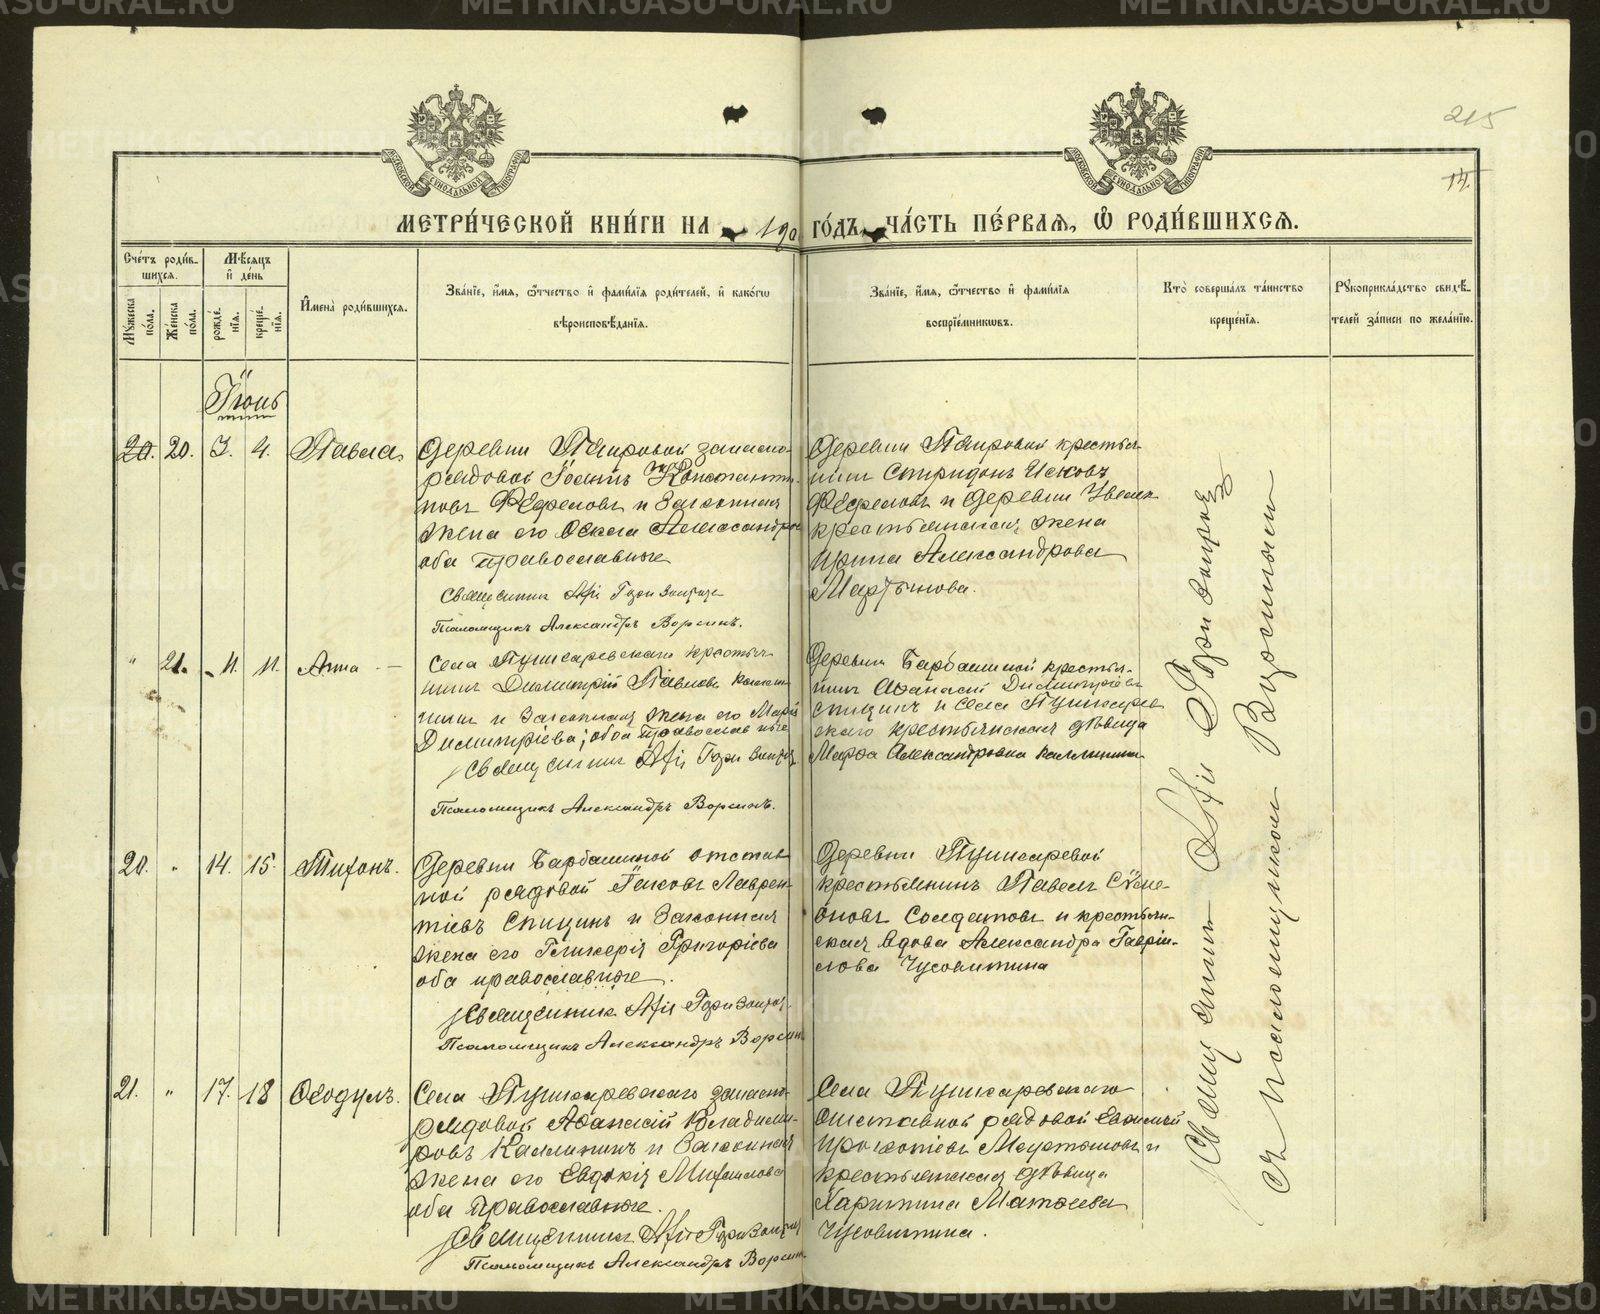 METRIKI.GASO-URAL.RU
215
14.
МОСКОВСКОЙ СѴНОДАЛЬНОЙ ТИПОГРАФІИ
МЕТРИ́ЧЕСКОЙ КНИ́ГИ НА 190 ГО́ДЪ, ЧА́СТЬ ПЕ́РВАЯ, Ѽ РОДИ́ВШИХСЯ.
Сче́тъ роди́вшихся.
Мѣ́сяцъ и де́нь
Му́жеска по́ла.
Же́нска по́ла.
рожде́нія.
креще́нія.
Имена̀ роди́вшихся.
Зва́ніе, и́мя, ѻ́тчество и фами́лія роди́телей, и како́гѡ
вѣроисповѣ́данія.
Зва́ніе, и́мя, ѻ́тчество и фами́лія
воспріе́мниковъ.
Кто̀ соверша́лъ та́инство
креще́нія.
Рукоприкла́дство свидѣ́телей за́писи по жела́нію.
Іюнь
20. 20. 3. 4. Павла.
Деревни запасно-
рядовой Іоаннъ Константи-
новъ Феофиловъ и законная
жена его Александрова
оба православные
Священникъ
Псаломщикъ Александръ Ворсинъ.
Деревни крестья-
нинъ Спиридонъ
и деревни
крестьянская жена
Ирина Александрова
Мартынова.
" 21. 11. 11. Анна
Села Пушкаревскаго крестья-
нинъ Димитрій Павловъ Калли-
нинъ и законная жена его Марія
Димитріева; оба православные
Священникъ
Псаломщикъ Александръ Ворсинъ.
Деревни Барбашиной крестья-
нинъ Аѳанасій Димитріевъ
Спицинъ и села Пушкарев-
скаго крестьянская дѣвица
Марѳа Александровна Каллинина
20. " 14. 15. Тихонъ.
Деревни Барбашиной отстав-
ной рядовой Іаковъ Лаврен-
тіевъ Спицинъ и законная
жена его Гликерія Григоріева
оба православные.
Священникъ
Псаломщикъ Александръ Ворсинъ
Деревни Пушкаревой
крестьянинъ Павелъ Сѵме-
оновъ Солдатовъ и крестьян-
ская вдова Александра Гаврии-
лова Чусовитина
21. " 17. 18 Ѳеодулъ.
Села Пушкаревскаго запасно-
рядовой Аѳанасій Владими-
ровъ Каллининъ и законная
жена его Евдокія Михаилова
оба православные.
Священникъ
Псаломщикъ Александръ Ворсинъ.
Села Пушкаревскаго
отставной рядовой Евѳимій
Прокопіевъ и
крестьянская дѣвица
Харитина Матѳеева
Чусовитина.
Священникъ
съ псаломщикомъ Ворсинымъ